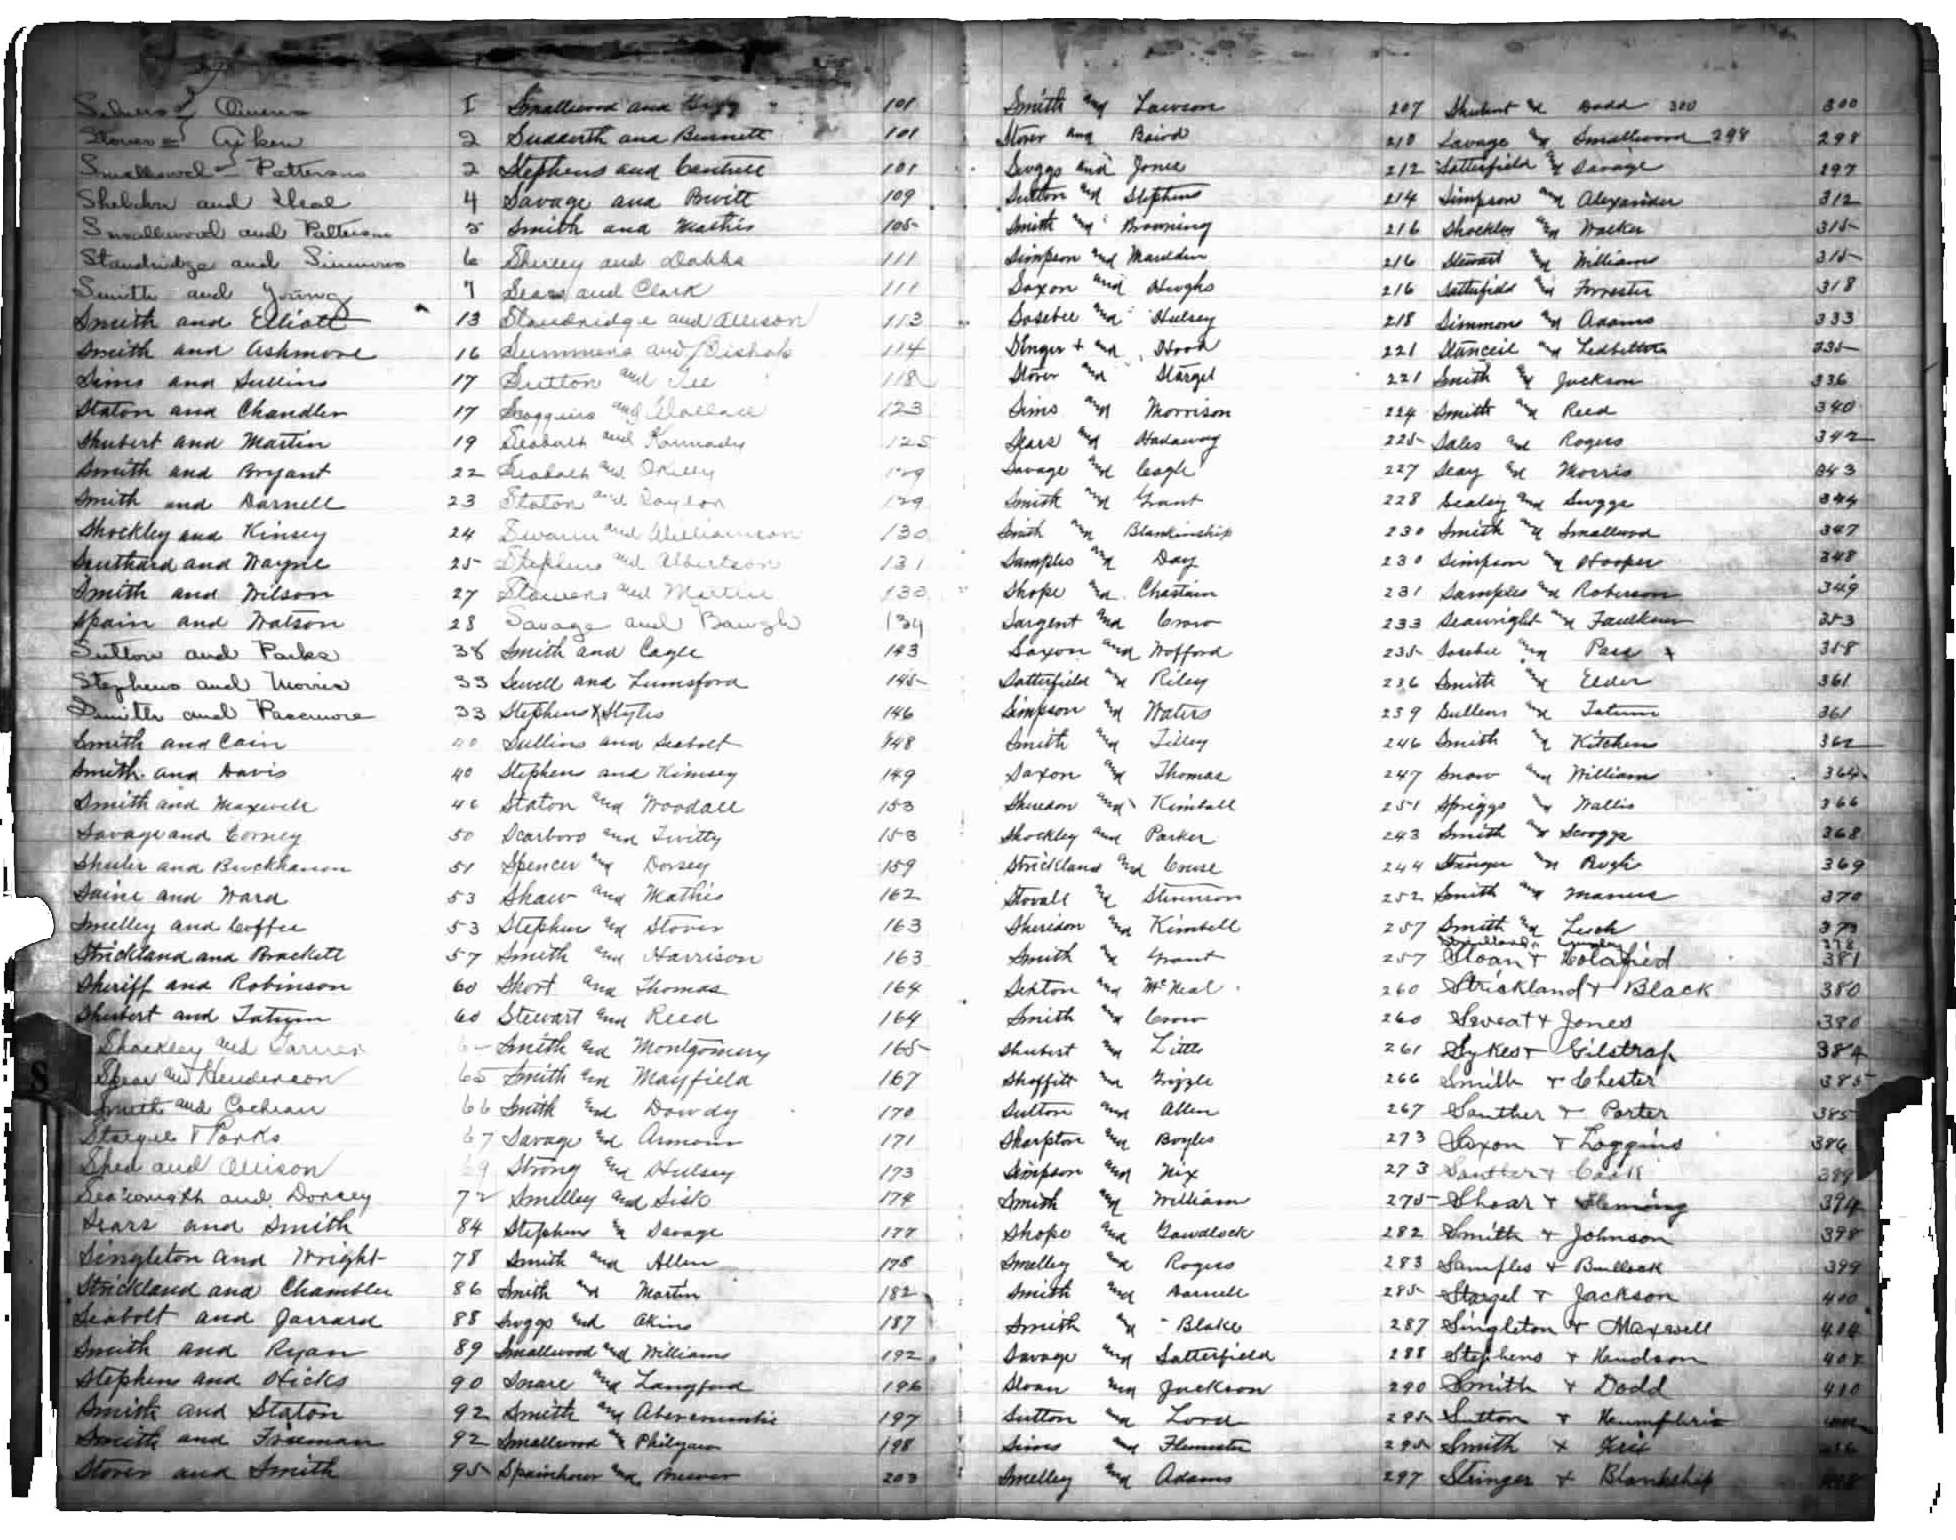 Owens 1
Stover = Aiken 2
Smallwood = Patterson 2
Shelden and Neal 4
Smallwood and Patterson 5
Standridge and Simmons 6
Smith and Young 7
Smith and Elliott 13
Smith and Ashmore 16
Sims and Sullins 17
Staton and Chandler 17
Shubert and Martin 19
Smith and Bryant 22
Smith and Darnell 23
Shockley and Kinsey 24
Southard and Wayne 25
Smith and Wilson 27
Spain and Watson 28
Sutton and Parks 38
Stephens and Morris 33
Smith and Passmore 33
Smith and Cain 40
Smith and Davis 40
Smith and Maxwell 46
Savage and Corney 50
Shuler and Buckhanon 51
Saine and Ward 53
Smelley and Coffee 53
Strickland and Brackett 57
Sheriff and Robinson 60
Shubert and Tatum 60
Shockley and Turner
Spear and Henderson 65
Smith and Cochran 66
Stargel & Parks 67
Shed and Allison 69
Seawright and Dorsey 72
Sears and Smith 84
Singleton and Wright 78
Strickland and Chambler 86
Seabolt and Jarrard 88
Smith and Ryan 89
Stephens and Hicks 90
Smith and Staton 92
Smith and Freeman 92
Stover and Smith 95
Smallwood and 101
Sudderth and Bennett 101
Stephens and Cantrell 101
Savage and 109
Smith and Mathis 105
Shirley and Dobbs 111
Sears and Clark 111
Standridge and Allison 113
Summers and Bishop 114
Sutton and Lee 118
Scoggins and Wallace 123
Seabolt and Kannady 125
Seabolt and 129
Staton and Taylor 129
Swann and Williamson 130
Stephens and Albertson 131
Stowers and Martin 133
Savage and Baugh 134
Smith and Cagle 143
Sewell and Lumsford 145
Stephens & Styles 146
Sullins and Seabolt 148
Stephens and Kimsey 149
Staton and Woodall 153
Scarboro and Twitty 153
Spencer and Dorsey 159
Shaw and Mathis 162
Stephens and Stover 163
Smith and Harrison 163
Short and Thomas 164
Stewart and Reed 164
Smith and Montgomery 165
Smith and Mayfield 167
Smith and Dowdy 170
Savage and Armour 171
Strong and Hulsey 173
Smelley and Sisk 174
Stephens & Savage 177
Smith and Allen 178
Smith and Martin 182
Suggs and Akins 187
Smallwood and Williams 192
and Langford 196
Smith and Abercrombie 197
Smallwood and Philyaw 198
Spainhour and Brewer 203
Smith and Lawson 207
Stover and Baird 210
Suggs and Jones 212
Sutton and Stephens 214
Smith and Browning 216
Simpson and Mauldin 216
Saxon and Hughs 216
Sosebee and Hulsey 218
Singer + and Hood 221
Stover and Stargel 221
Sims and Morrison 224
Sears and Hadaway 225
Savage and Cagle 227
Smith and Grant 228
Smith and Blankinship 230
Samples and Day 230
Shope and Chastain 231
Sargent and Crow 233
Saxon and Wofford 235
Satterfield and Riley 236
Simpson and Waters 239
Smith and Tilley 246
Saxon and Thomas 247
Sheridan and Kimball 251
Shockley and Parker 243
Strickland and Couse 244
Stovall and Stinnson 252
Sheridon and Kimbell 257
Smith and Grant 257
Sexton and McNeal 260
Smith and Crow 260
Shubert and Little 261
Shoffitt and Grizzle 266
Sutton and Allen 267
Sharpton and Boyles 273
Simpson and Nix 273
Smith and William 275
Shope and Gowdlock 282
Smelley and Rogers 283
Smith and Darnell 285
Smith and Blake 287
Savage and Satterfield 288
Sloan and Jackson 290
Sutton and Lord 295
Sims and Flemister 295
Smelley and Adams 297
Shubert and Dodd 300 300
Savage and Smallwood 298 298
Satterfield and Savage 297
Simpson and Alexander 312
Shockley and Walker 315
Stewart and Williams 315
Satterfield and Forrester 318
Simmons and Adams 333
Stanceil and Ledbetter 335
Smith and Jackson 336
Smith and Reed 340
Sales and Rogers 342
Seay and Morris 343
Sealey and Suggs 344
Smith and Smallwood 347
Simpson and Hooper 348
Samples and Roberson 349
Seawright and Faulkner 353
Sosebee and Pass 358
Smith and Elder 361
Sullens and Tatum 361
Smith and Kitchen 362
Snow and William 364
Spriggs and Wallis 366
Smith and Scroggs 368
Stringer and Pugh 369
Smith and Manus 370
Smith and Leach 373
378
Sloan & 381
Strickland & Black 380
Sweat & Jones 380
Sykes & Gilstrap 384
Smith & Chester 385
Souther & Porter 385
Saxon & Loggins 386
Souther & Cook 389
Shoar & Fleming 394
Smith & Johnson 398
Samples & Bullock 399
Stargel & Jackson 400
Singleton & Maxwell 404
Stephens & Hendson
Smith & Dodd 410
Sutton & Humphries
Smith &
Stringer & Blankship